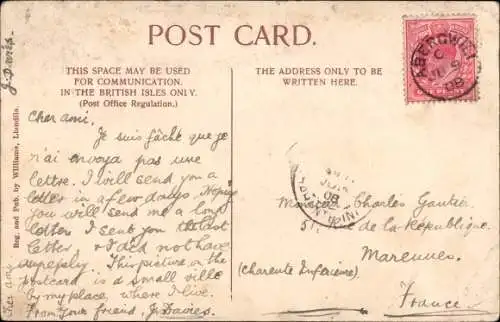 POST CARD.
THIS SPACE MAY BE USED
FOR COMMUNICATION.
IN THE BRITISH ISLES ONLY.
(Post Office Regulation.)
THE ADDRESS ONLY TO BE
WRITTEN HERE.
ABERGWILI
C
08
J. Davies
Reg. and Pub. by Williams, Llandilo.
Cher ami
Cher ami.
Je suis fâché que je
n'ai envoya pas une
lettre. I will send you a
letter in a few days. Hoping
you will send me a long
letter. I sent you the last
letter, & I did not have
a reply. This picture on the
postcard is a small ville
by my place where I live.
From your friend, J. Davies.
08
Monsieur Charles Gautier
51, Rue de la République.
Marennes.
(Charente Inférieure)
France